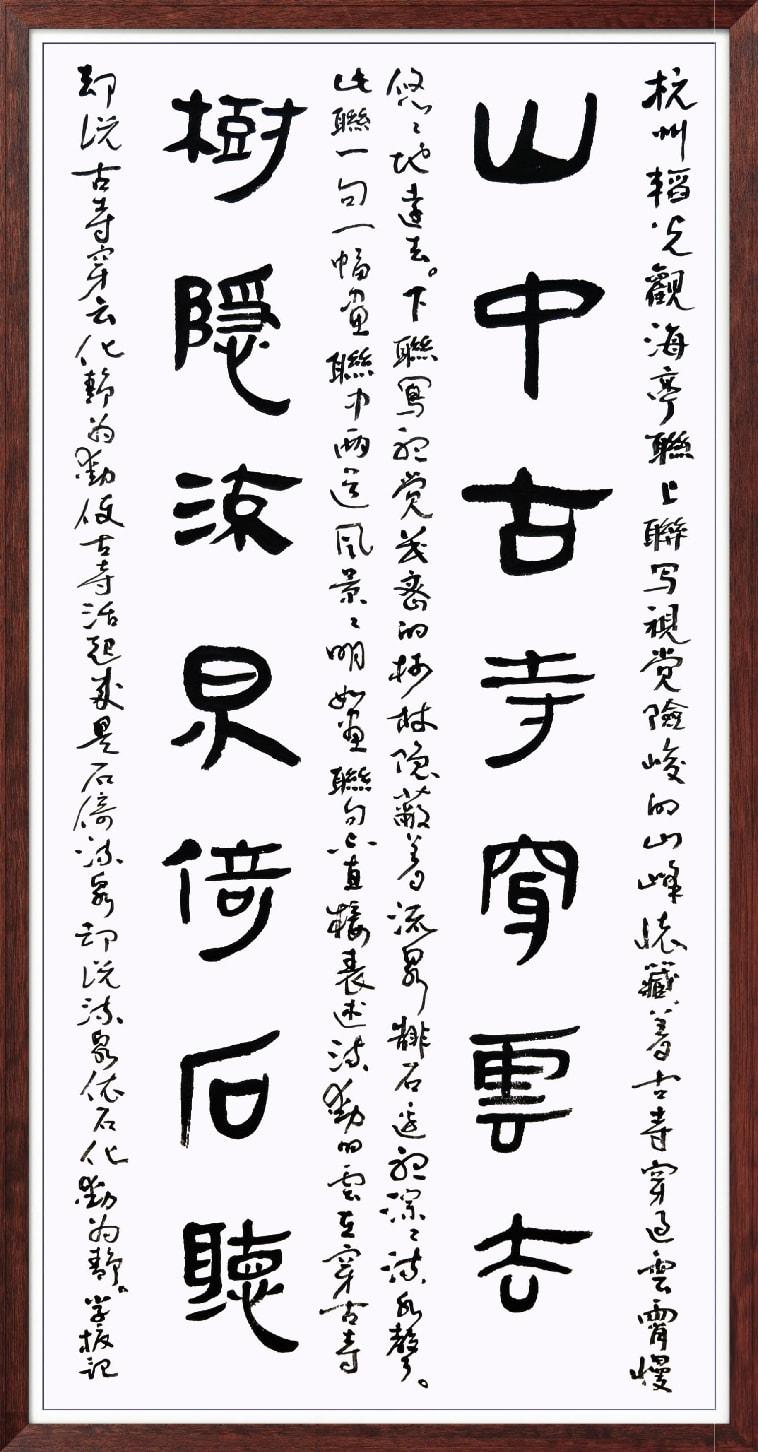 杭州韬光觀海亭聯上聯写視觉險峻的山峰懐藏着古寺穿过雲霄慢
山中古寺穿雲去
悠々地遠去。下聯寫觉茂密的树林隐蔽着流泉石深々流水聲。
此聯一句一幅画聯中兩道風景々明如画聯句直接表述流動的雲在穿古寺
樹隱流泉倚石聽
却说古寺穿云化静为動使古寺活起来是石倚流泉却说流泉依石化動为静。学振记